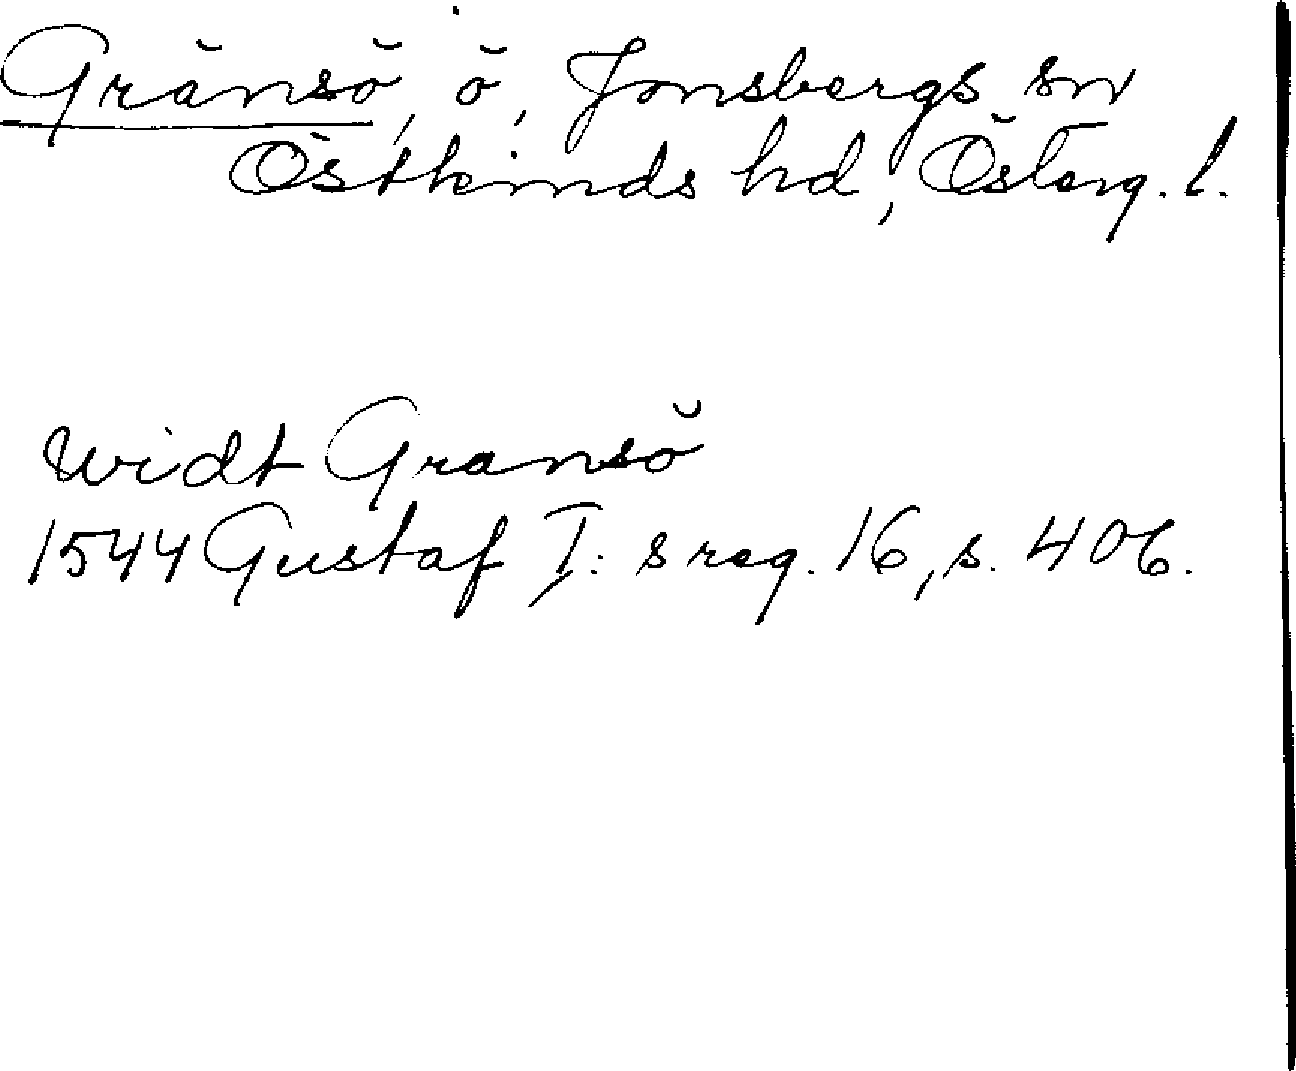 Gränsö, ö, Jonsbergs sn
Östkinds hd, Österg. l.
widt Gransö
1544 Gustaf I: s reg. 16, s. 406.